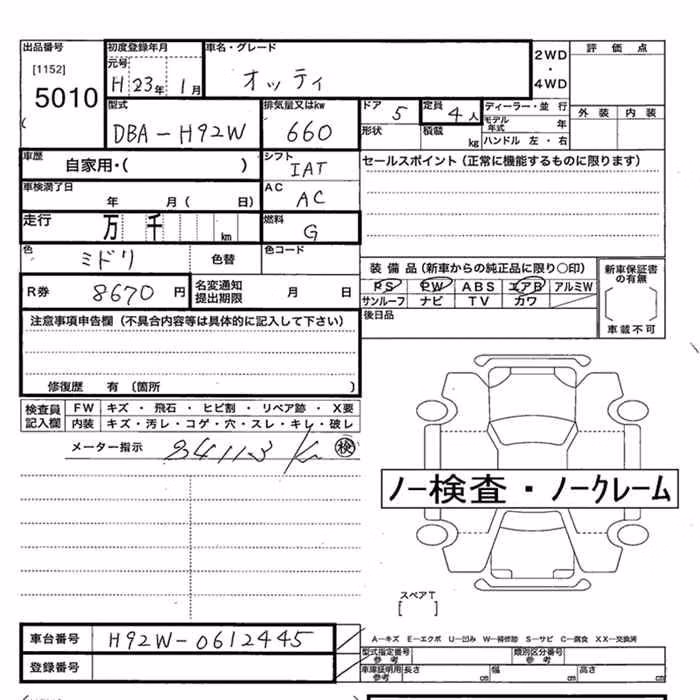 出品番号
[1152]
5010
初度登録年月
元号
H 23年 1月
車名・グレード
オッティ
2WD
・
4WD
評価点
外装 内装
型式
DBA-H92W
排気量又はkw
660
ドア 5
定員 4人
形状
積載 kg
ディーラー・並行
モデル年式 年
ハンドル 左・右
車歴
自家用・( )
シフト
IAT
セールスポイント(正常に機能するものに限ります)
車検満了日
年 月( 日)
AC
AC
走行
万 千 km
燃料
G
色
ミドリ
色替
色コード
装備品(新車からの純正品に限り○印)
PS PW ABS エアB アルミW
サンルーフ ナビ TV カワ
新車保証書の有無
車載不可
R券 8670 円
名変通知
提出期限
月 日
後日品
注意事項申告欄(不具合内容等は具体的に記入して下さい)
修復歴 有(箇所 )
検査員
記入欄
FW キズ・飛石・ヒビ割・リペア跡・X要
内装 キズ・汚レ・コゲ・穴・スレ・キレ・破レ
メーター指示
検
ノー検査・ノークレーム
スペアT
[ ]
車台番号 H92W-0612445
登録番号
A－キズ E－エクボ U－凹み W－補修跡 S－サビ C－腐食 XX－交換済
型式指定番号
参考
類別区分番号
参考
車庫証明用
参考
長さ cm 幅 cm 高さ cm